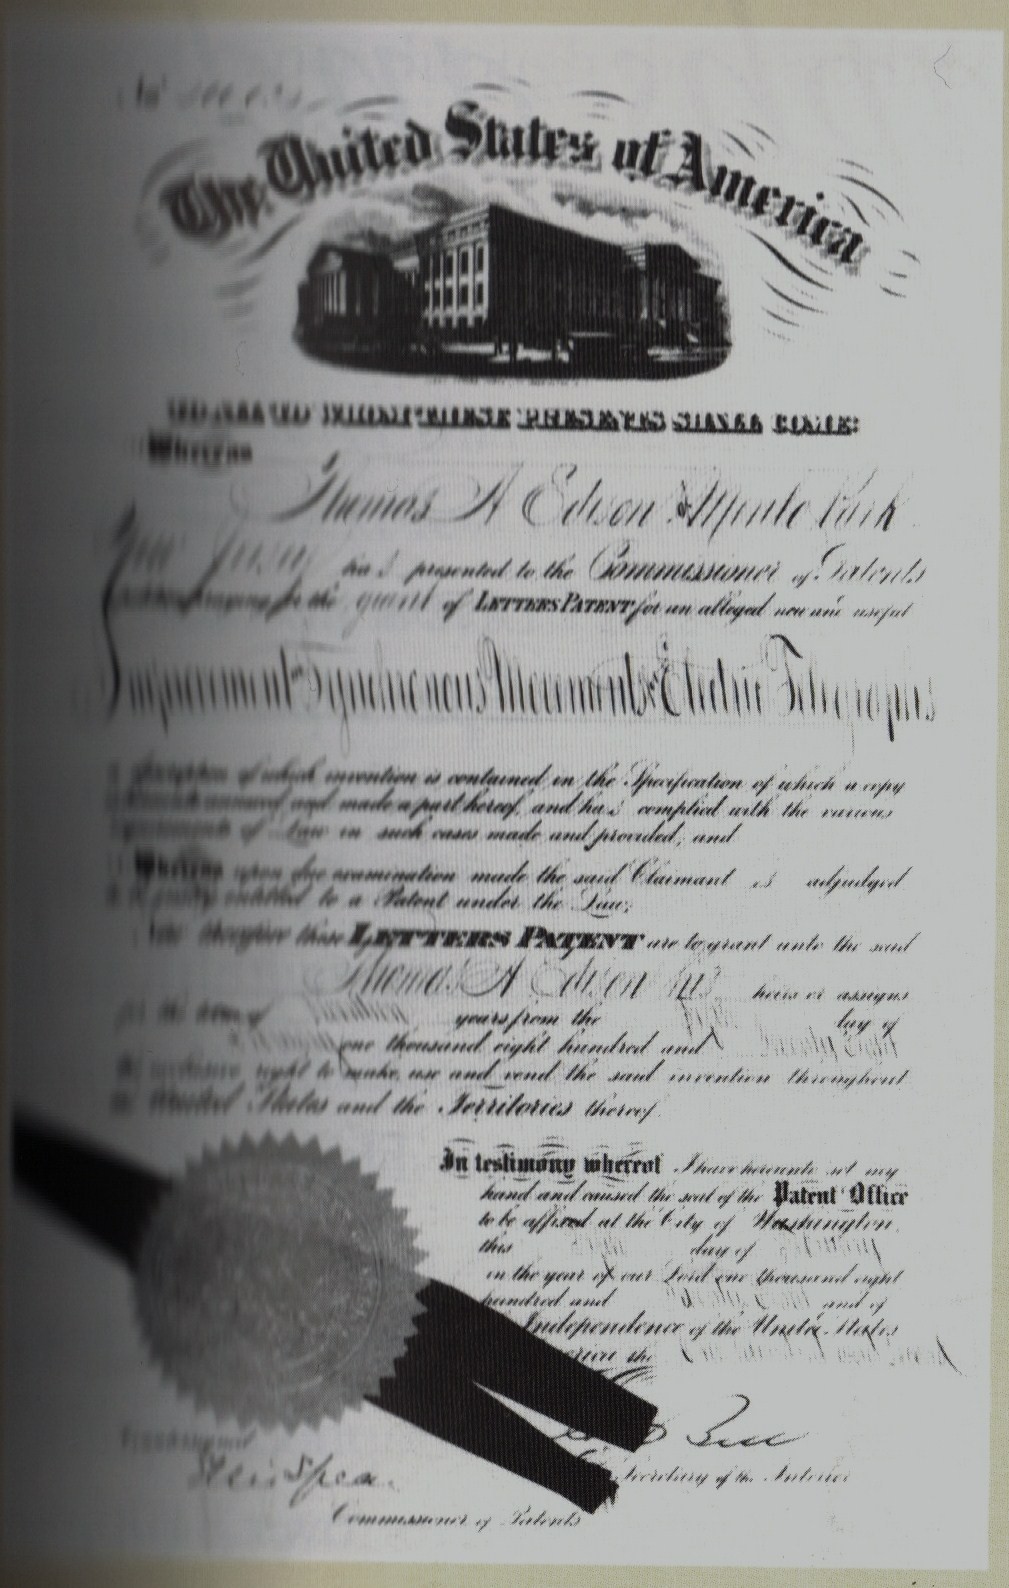 The United States of America
TO ALL TO WHOM THESE PRESENTS SHALL COME:
Whereas
Thomas A Edison of Menlo Park
New Jersey has presented to the Commissioner of Patents
for the grant of LETTERS PATENT for an alleged new and useful
Improvement in Synchronous Movements for Electric Telegraphs
description of which invention is contained in the Specification of which a copy
annexed and made a part hereof, and has complied with the various
requirements of Law in such cases made and provided; and
Whereas upon due examination made the said Claimant is adjudged
to be justly entitled to a Patent under the Law;
Now therefore these LETTERS PATENT are to grant unto the said
Thomas A Edison his heirs or assigns
for the term of years from the day of
one thousand eight hundred and Seventy Eight
the exclusive right to make, use and vend the said invention throughout
the United States and the Territories thereof.
In testimony whereof I have hereunto set my
hand and caused the seal of the Patent Office
to be affixed at the City of Washington
this day of February
in the year of our Lord one thousand eight
hundred and Seventy Eight and of
Independence of the United States
the
Bell
Secretary of the Interior
Countersigned
Spear
Commissioner of Patents